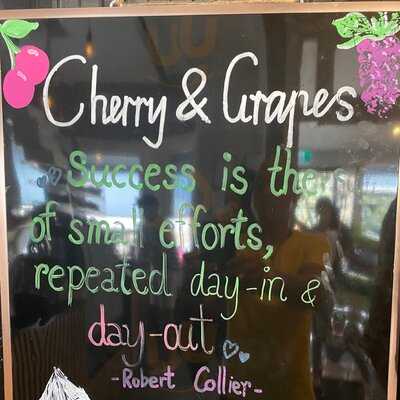 Cherry & Grapes
Success is the
of small efforts,
repeated day-in &
day-out
- Robert Collier -